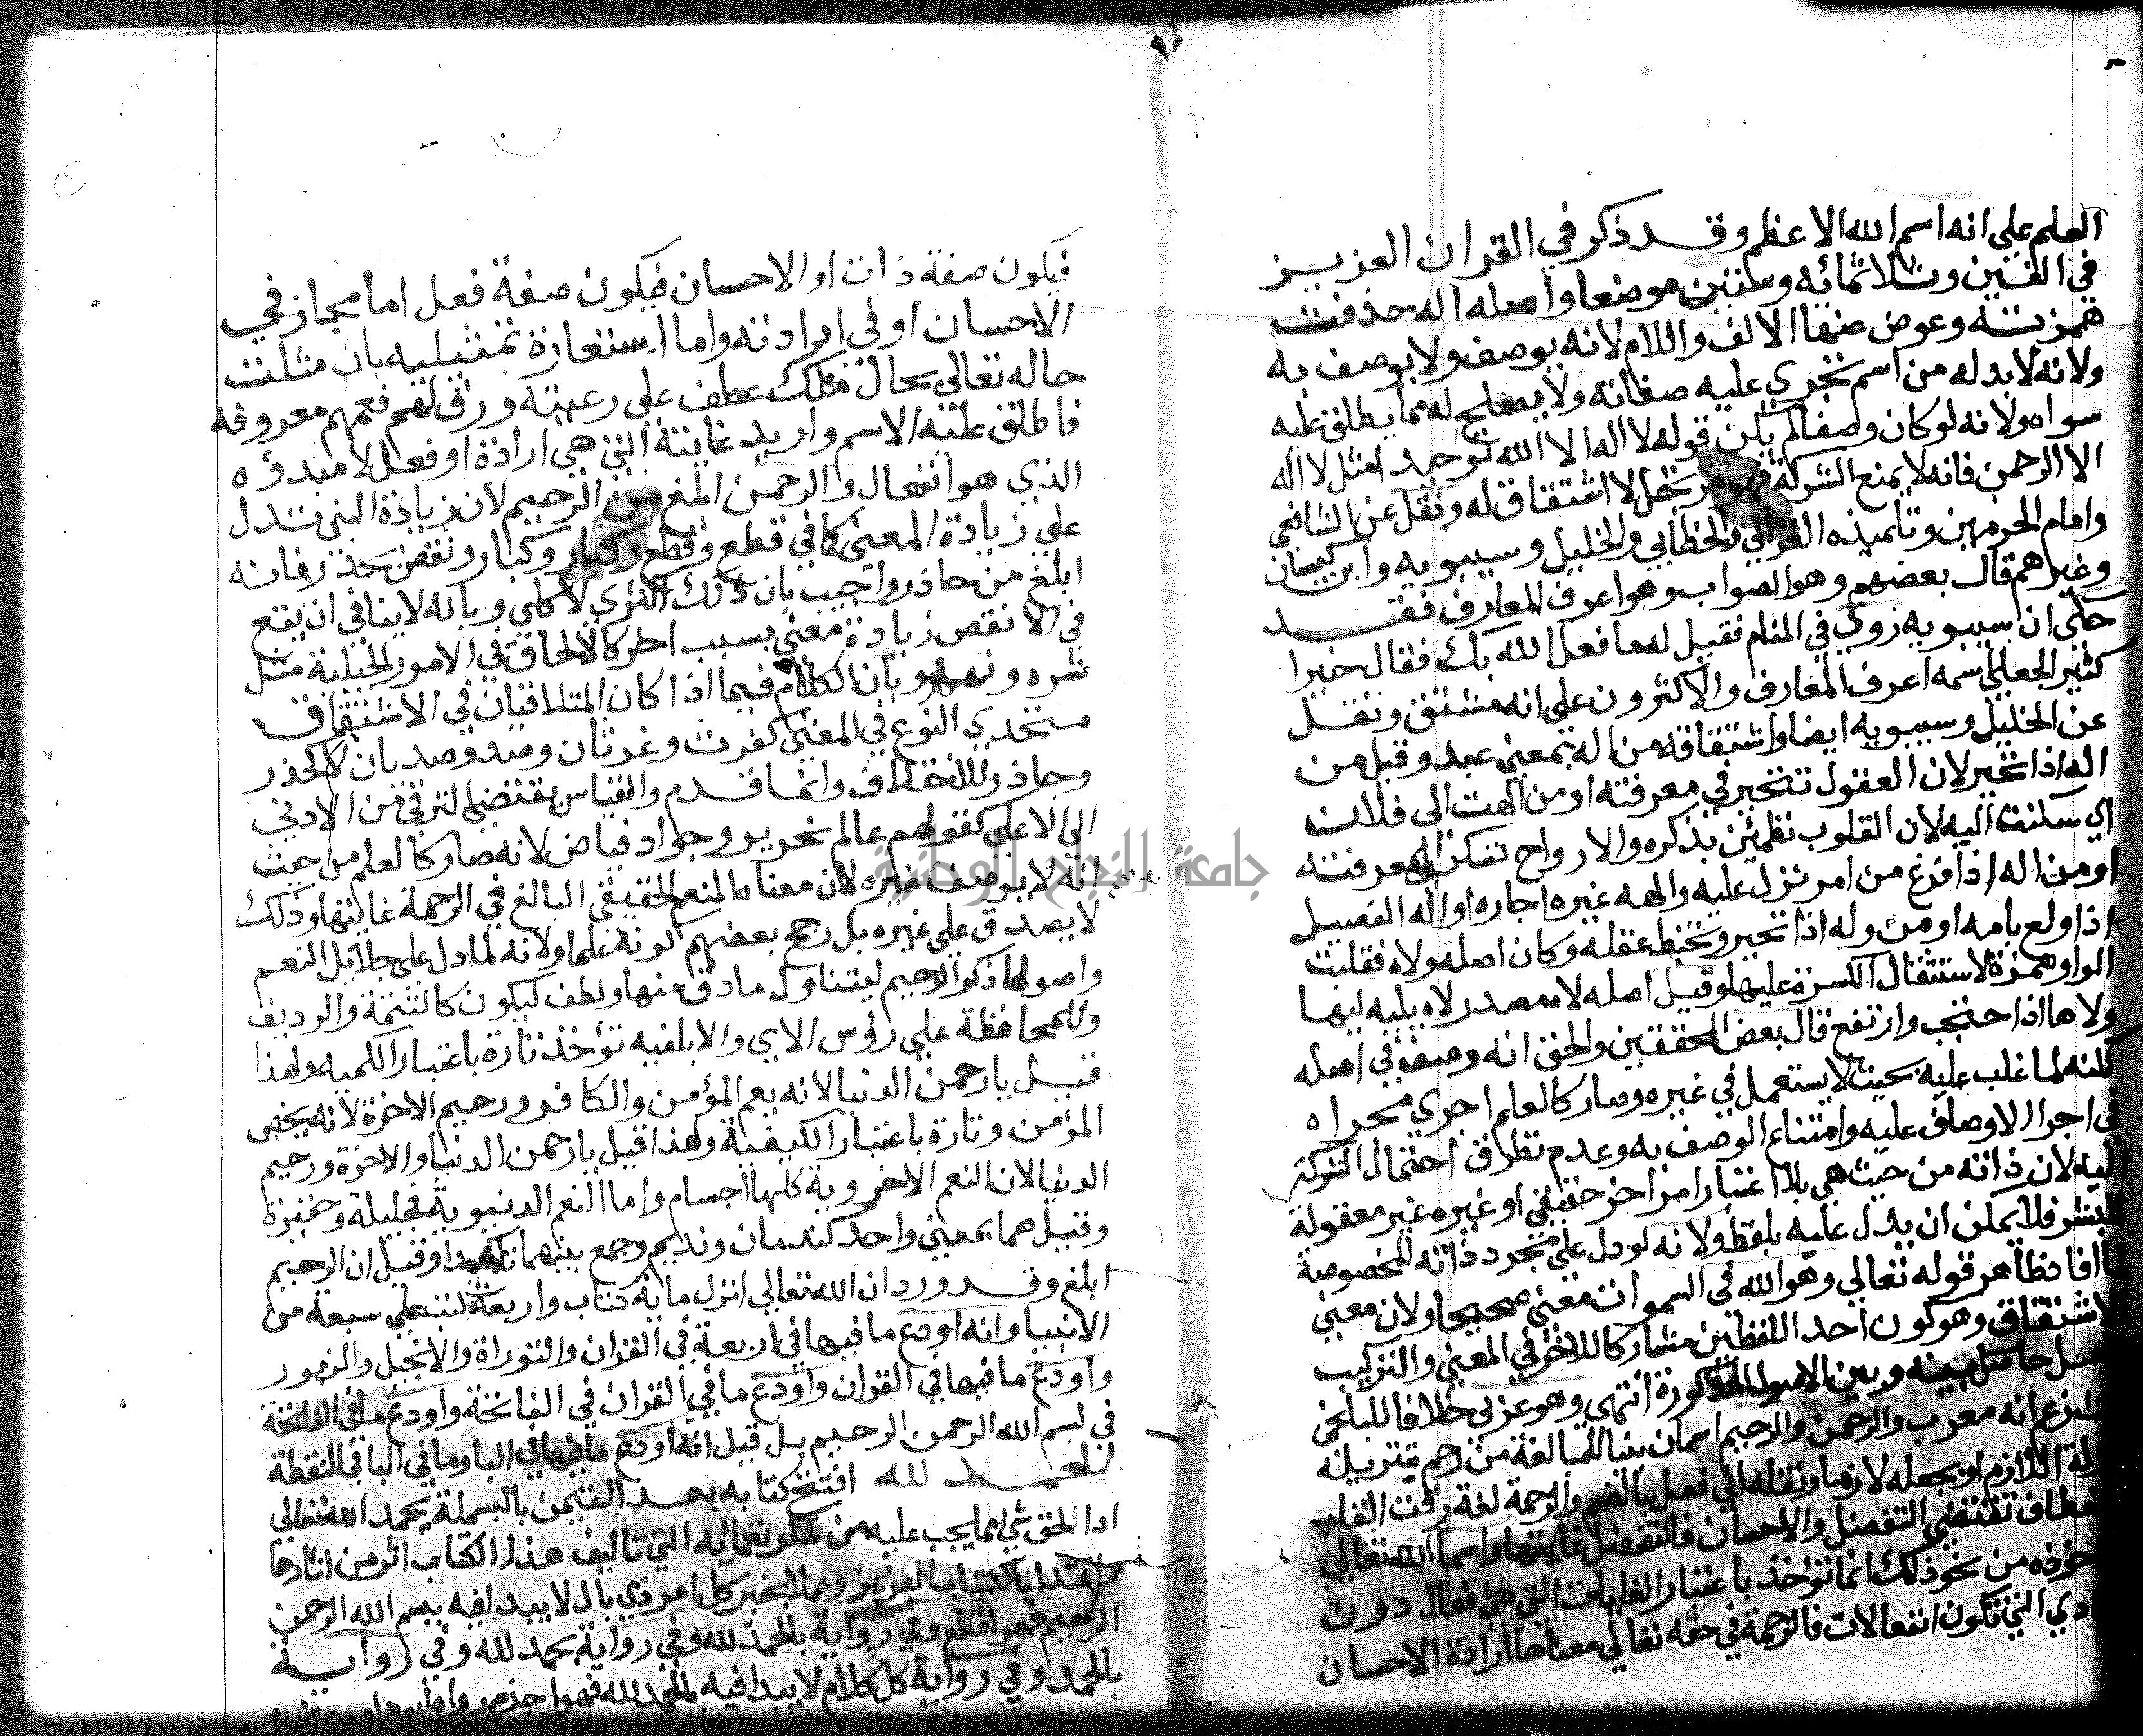 العلم علي انه اسم الله الاعظم وقد ذكر في القران العزيز
في الفين وثلاثمائه وستين موضعا واصله اله حذفت
همزته وعوض عنها الالف واللام لانه يوصف ولا يوصف به
ولانه لابد له من اسم تجري عليه صفاته ولا يصلح له مما يطلق عليه
سواه ولانه لو كان وصفا لم يكن قوله لا اله الا الله توحيد امثل لا اله
الا الرحمن فانه لا يمنع الشركة فهو مرتجل لا اشتقاق له ونقل عن الشافعي
وامام الحرمين وتلميذه الغزالي والخطابي والخليل وسيبويه وابن كيسان
وغيرهم قال بعضهم وهو الصواب وهو اعرف المعارف فقد
حكى ان سيبويه رؤي في المنام فقيل له ما فعل الله بك فقال خيرا
كثيرا لجعلي اسمه اعرف المعارف والاكثرون علي انه مشتق ونقل
عن الخليل وسيبويه ايضا واشتقاقه من اله بمعني عبد وقيل من
اله اذا تحير لان العقول تتحير في معرفته او من الهت الى فلان
اي سكنت اليه لان القلوب تطمئن بذكره والارواح تسكن الى معرفته
او من اله اذا فزغ من امر نزل عليه والهه غيره اجاره او اله الفصيل
اذا ولع بامه او من وله اذا تحير وتخبط عقله وكان اصله ولاه فقلبت
الواو همزة لاستثقال الكسرة عليها وقيل اصله لاه مصدر لاه يليه ليها
ولاها اذا احتجب وارتفع قال بعض المحققين والحق انه وصف في اصله
لكنه لما غلب عليه بحيث لا يستعمل في غيره وصار كالعلم اجري مجراه
في اجرا الاوصاف عليه وامتناع الوصف به وعدم تطرق احتمال الشركة
اليه لان ذاته من حيث هي بلا اعتبار امر اخر حقيقي او غيره غير معقولة
للبشر فلا يمكن ان يدل عليه بلفظ ولانه لو دل على مجرد ذاته المخصوصة
لما افاد ظاهر قوله تعالي وهو الله في السموات معني صحيحا ولان معني
الاشتقاق وهو كون احد اللفظين مشاركا للاخر في المعني والتركيب
حاصل بينه وبين الاصول المذكورة انتهي وهو عربي خلافا للبلخي
زعم انه معرب والرحمن والرحيم اسمان بنيا للمبالغة من رحم بتنزيله
اللازم او بجعله لازما ونقله الي فعل بالضم والرحمة لغة رقت القلب
تقتضي التفضل والاحسان فالتفضل غايتها واسما الله تعالي
من نحو ذلك انما تؤخذ باعتبار الغايات التي هي افعال دون
التي تكون انفعالات فالرحمة في حقه تعالي معناها ارادة الاحسان
فيكون صفة ذات او الاحسان فيكون صفة فعل اما مجاز في
الاحسان او في ارادته واما استعارة تمثيليه بان مثلت
حاله تعالي بحال ملك عطف علي رعيته ورق لهم فعمهم معروفه
فاطلق عليه الاسم واريد غايته التي هي ارادة او فعل لا مبدؤه
الذي هو انفعال والرحمن ابلغ من الرحيم لان زيادة البني تدل
علي زيادة المعنى كما في قطع وقطع وكبار وكبار ونقض بحذر فانه
ابلغ من حاذر واجيب بان ذلك اكثري لا كلي وبانه لاينافي ان يقع
في الانقص زيادة معني بسبب اخر كالالحاق في الامور الجبلية مثل
شره ونهم وبان الكلام فيما اذا كان المتلاقيان في الاشتقاق
متحدي النوع في المعني كغرث وغرثان وصد وصديان لا كحذر
وحاذر للاختلاف وانما قدم والقياس يقتضي الترقي من الادني
الى الاعلي كقولهم عالم نحرير وجواد فياض لانه صار كالعلم من حيث
انه لا يوصف غيره لان معناه المنعم الحقيقي البالغ في الرحمة غايتها وذلك
لا يصدق علي غيره بل رجح بعضهم كونه علما ولانه لما دل علي جلائل النعم
واصولها ذكر الرحيم ليتناول ما دق منها ولطف ليكون كالتتمة والرديف
وللمحافظة علي رؤس الاي والابلغيه تؤخذ تارة باعتبار الكميه ولهذا
قيل يا رحمن الدنيا لانه يعم المؤمن والكافر ورحيم الاخرة لانه يخص
المؤمن وتارة باعتبار الكيفية ولهذا قيل يا رحمن الدنيا والاخرة ورحيم
الدنيا لان النعم الاخروية كلها اجسام واما النعم الدنيوية فجليلة وحقيرة
وقيل هما بمعني واحد كندمان ونديم وجمع بينهما تاكيدا وقيل ان الرحيم
ابلغ وقد ورد ان الله تعالي انزل مائة كتاب واربعة كتب علي سبعة من
الانبيا وانه اودع ما فيها في اربعة في القران والتوراة والانجيل والزبور
واودع ما فيها في القران واودع ما في القران في الفاتحة واودع ما في الفاتحة
في بسم الله الرحمن الرحيم بل قيل انه اودع ما فيها في البا وما في البا في النقطة
الحمد لله افتتح كتابه بعد التيمن بالبسملة بحمد الله تعالي
ادا لحق شي مما يجب عليه من شكر نعمائه التي تاليف هذا الكتاب اثر من اثارها
واقتدا بالكتاب العزيز وعملا بخبر كل امر ذي بال لا يبدا فيه ببسم الله الرحمن
الرحيم فهو اقطع وفي رواية بالحمد لله وفي رواية بحمد لله وفي رواية
بالحمد وفي رواية كل كلام لا يبدا فيه بالحمد لله فهو اجذم رواه ابو داود
جامعة النجاح الوطنية